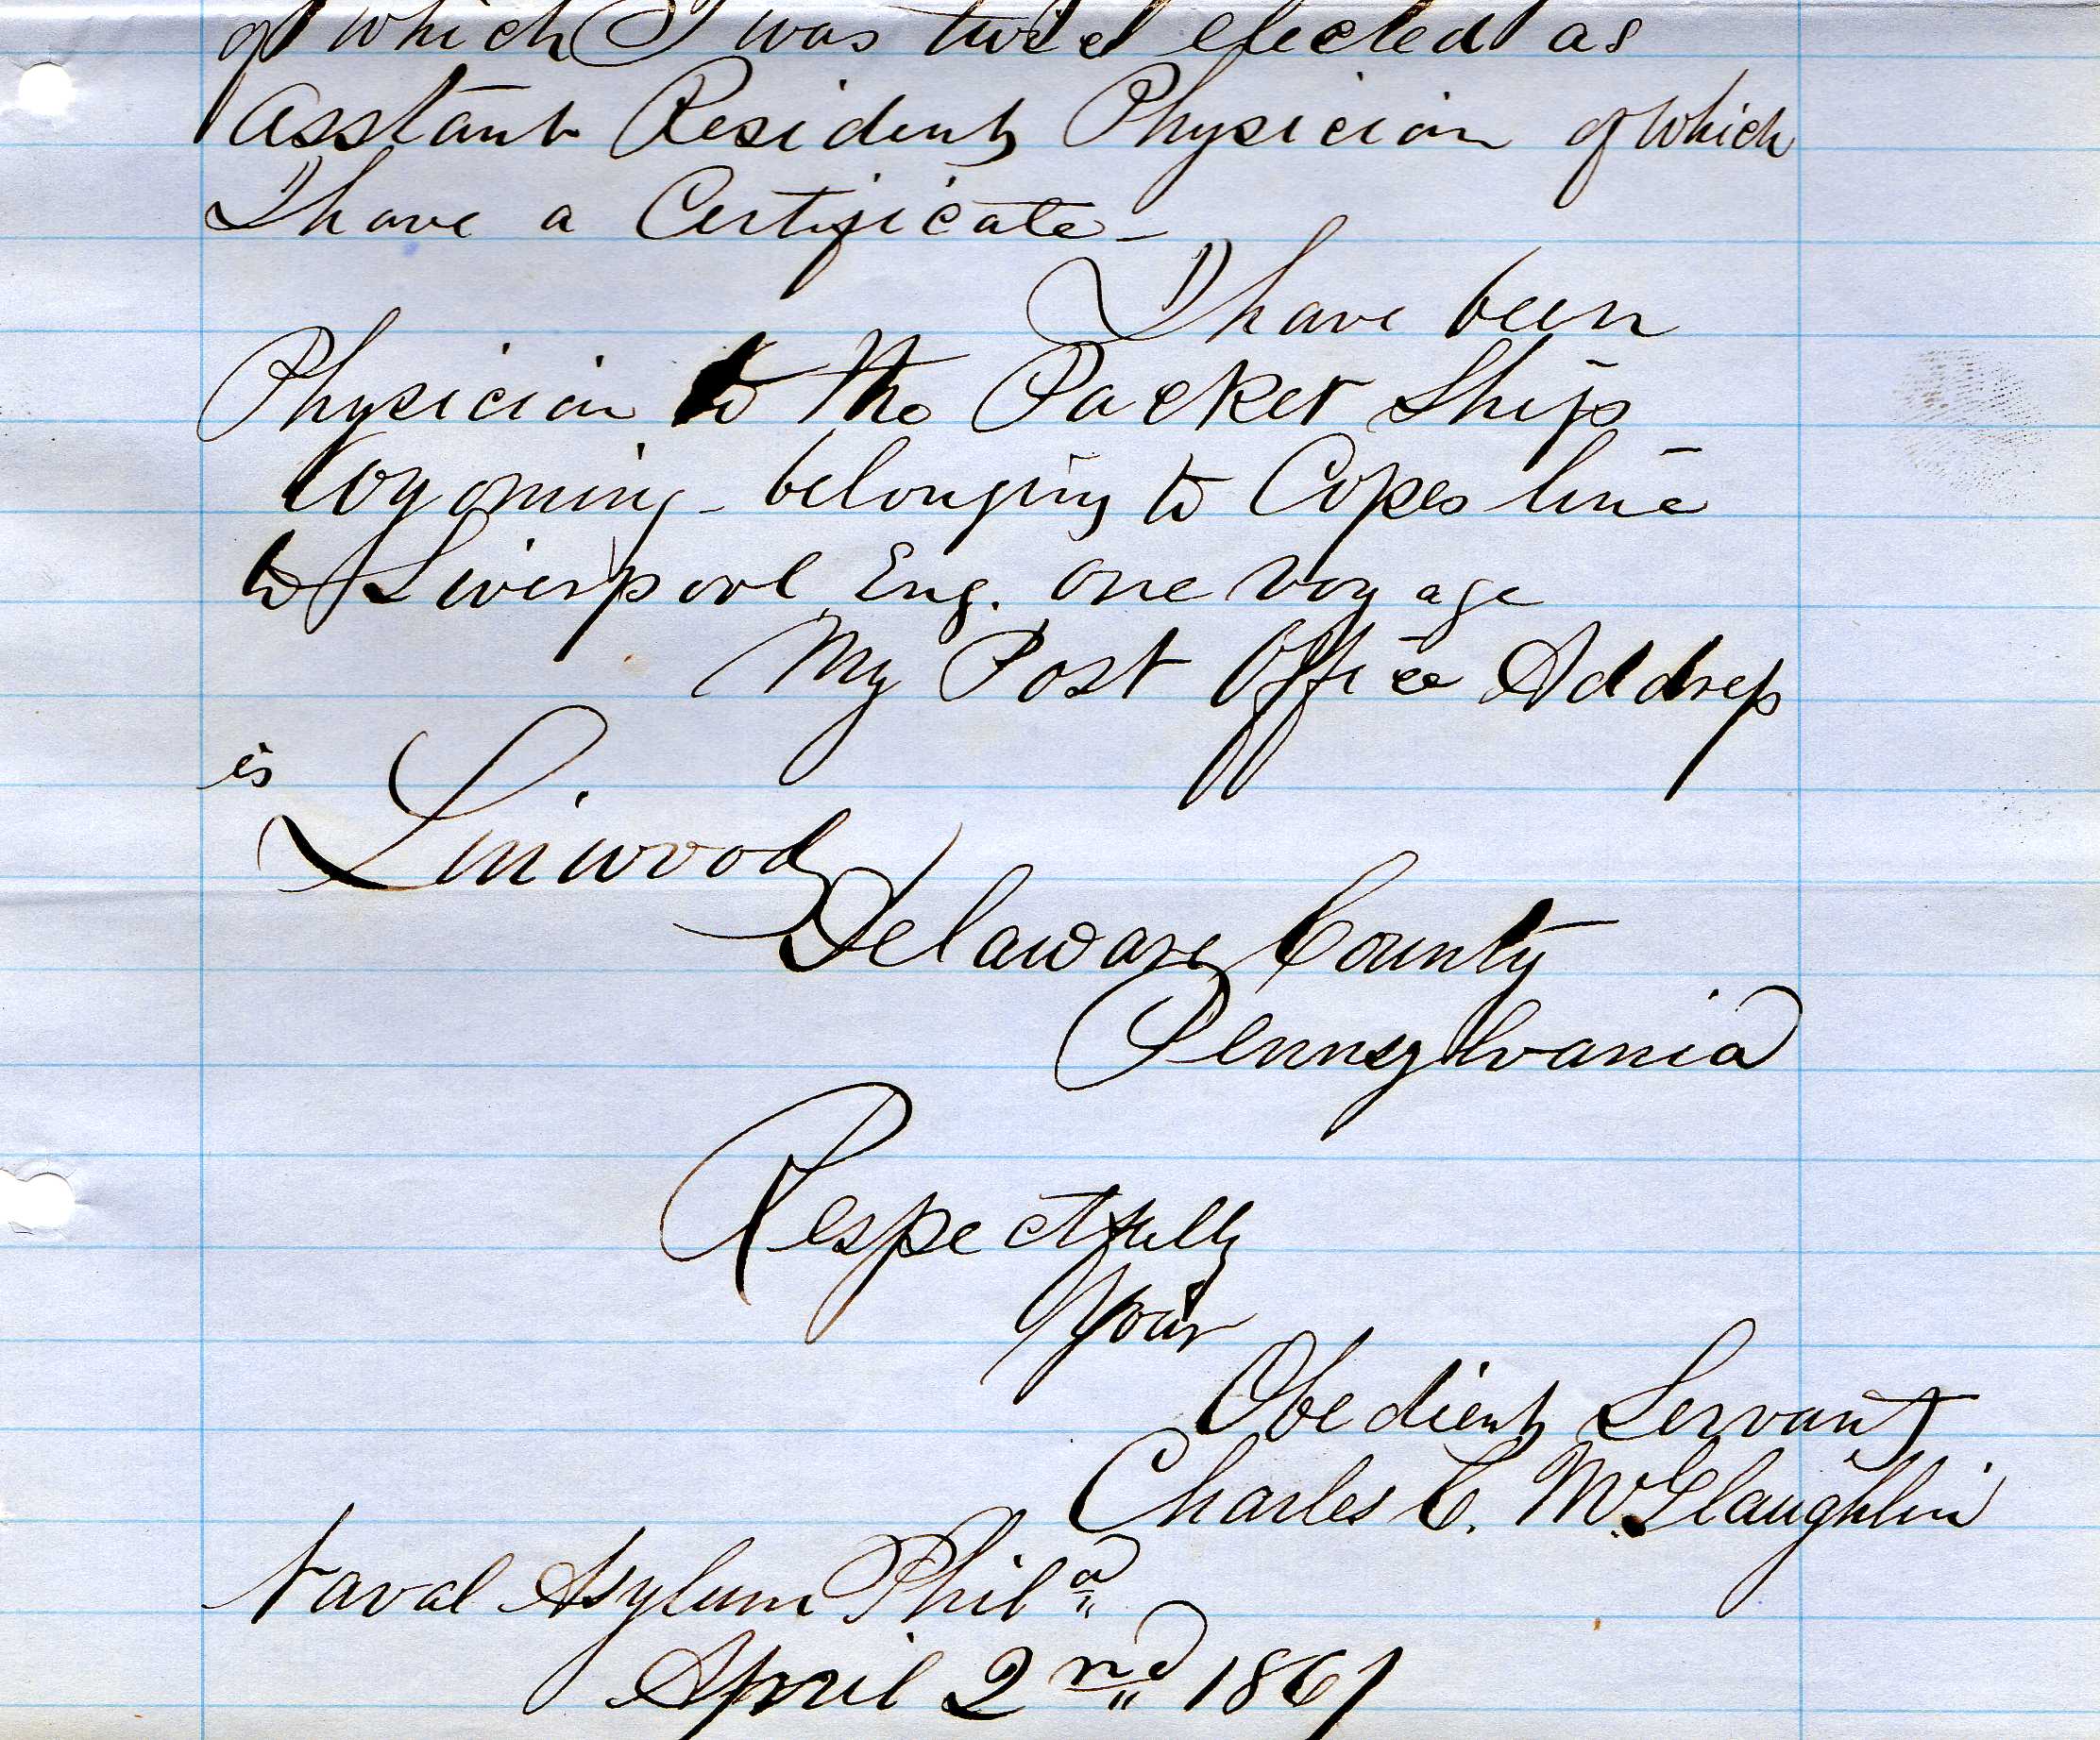 of which I was twice elected as
Asstant Resident Physician of which
I have a Certificate -
I have been
Physician to the Packet Ship
Wyoming - belonging to Copes line
to Liverpool Eng. one voyage
My Post Office Address
is
Linwood
Delaware County
Pennsylvania
Respectfully
Your
Obedient Servant
Charles C. McGlaughlin
Naval Asylum Phila
April 2nd 1861